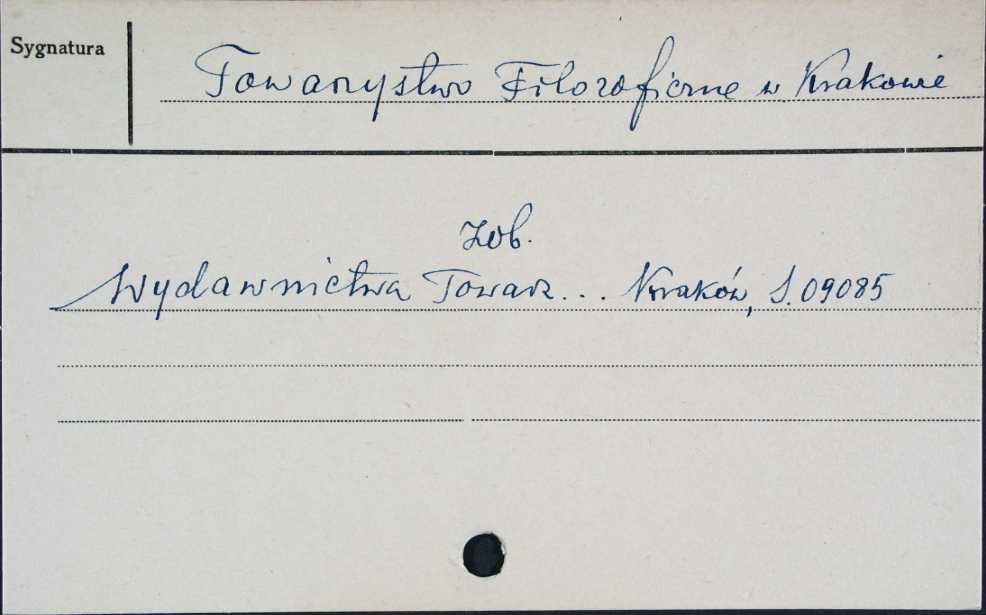 Sygnatura
Towarzystwo Filozoficzne w Krakowie
zob.
Wydawnictwa Towarz... Kraków, S. 09085